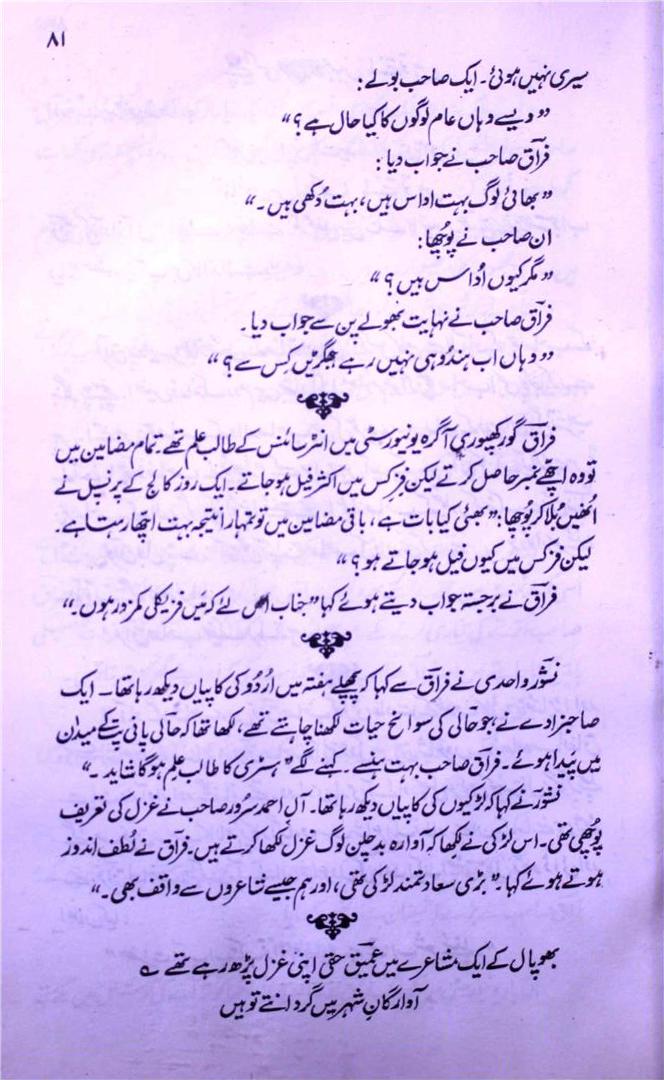 ۸۱
سیری نہیں ہوئی۔ ایک صاحب بولے:
”ویسے وہاں عام لوگوں کا کیا حال ہے؟“
فراقؔ صاحب نے جواب دیا:
”بھائی لوگ بہت اداس ہیں، بہت دُکھی ہیں۔“
ان صاحب نے پوچھا:
”مگر کیوں اُداس ہیں؟“
فراقؔ صاحب نے نہایت بھولے پن سے جواب دیا۔
”وہاں اب ہندو ہی نہیں رہے جھگڑیں کِس سے؟“
فراقؔ گورکھپوری آگرہ یونیورسٹی میں انٹر سائنس کے طالب علم تھے۔ تمام مضامین میں
تو وہ اچھّے نمبر حاصل کرتے لیکن فزکس میں اکثر فیل ہو جاتے۔ ایک روز کالج کے پرنسپل نے
اُنھیں بُلا کر پوچھا: ”بھئی کیا بات ہے، باقی مضامین میں تو تمہارا نتیجہ بہت اچھّا رہتا ہے۔
لیکن فزکس میں کیوں فیل ہو جاتے ہو؟“
فراقؔ نے برجستہ جواب دیتے ہوئے کہا ”جناب اس لئے کہ میں فزیکلی کمزور ہوں۔“
نشورؔ واحدی نے فراقؔ سے کہا کہ پچھلے ہفتہ میں اُردُو کی کاپیاں دیکھ رہا تھا۔ ایک
صاحبزادے نے، جو حالی کی سوانح حیات لکھنا چاہتے تھے، لکھا تھا کہ حالی پانی پت کے میدان
میں پیدا ہوئے۔ فراقؔ صاحب بہت ہنسے۔ کہنے لگے ”ہسٹری کا طالب علم ہوگا شاید۔“
نشورؔ نے کہا کہ لڑکیوں کی کاپیاں دیکھ رہا تھا۔ آلِ احمد سرور صاحب نے غزل کی تعریف
پوچھی تھی۔ اس لڑکی نے لکھا کہ آوارہ بدچلن لوگ غزل لکھا کرتے ہیں۔ فراقؔ نے لُطف اندوز
ہوتے ہوئے کہا۔ ”بڑی سعادتمند لڑکی تھی، اور ہم جیسے شاعروں سے واقف بھی۔“
بھوپال کے ایک مشاعرے میں عمیقؔ حنفی اپنی غزل پڑھ رہے تھے ؎
آوارگانِ شہر میں گردانتے تو ہیں